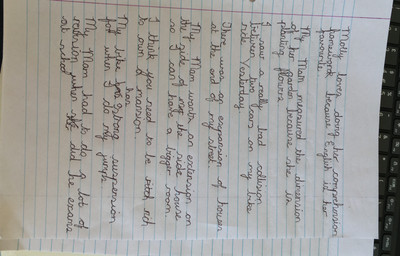 Molly loves doing her comprehension
homework because English is her
favourite.
My Mam measured the dimension
of her garden because she is
planting flowers.
I saw a really bad collision
between two cars on my bike
ride yesterday.
There was an expansion of houses
at the end of my street.
My Mam wants an extension on
the side of the side house
so I can have a bigger room.
I think you need to be rich rich
to own a mansion.
My bike has strong suspension
for when I do my jumps
My Mam had to do a lot of
revision when she did he exams
at school